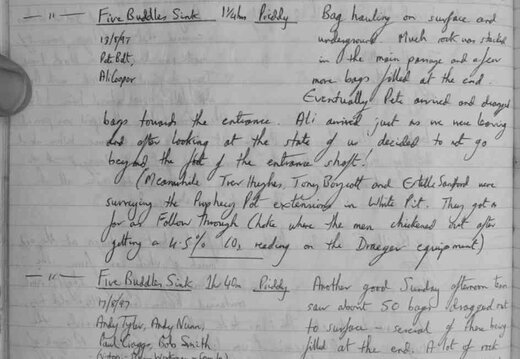 — " — Five Buddles Sink 1¼hrs Priddy Bag hauling on surface and
13/8/97 underground. Much rock was stacked
Pete Bolt, in the main passage and a few
Ali Cooper more bags filled at the end.
Eventually Pete arrived and dragged
bags towards the entrance. Ali arrived just as we were leaving
and after looking at the state of us decided to not go
beyond the foot of the entrance shaft!
(Meanwhile Trev Hughes, Tony Boycott and Estelle Sandford were
surveying the Prophecy Pot extensions in White Pit. They got as
far as Follow Through Choke where the men chickened out after
getting a 4.5% CO₂ reading on the Draeger equipment)
— " — Five Buddles Sink 1h 40m Priddy Another good Sunday afternoon team
17/8/97 saw about 50 bags dragged out
Andy Tyler, Andy Nunn, to surface – several of these being
Bob Smith filled at the end. A lot of rock